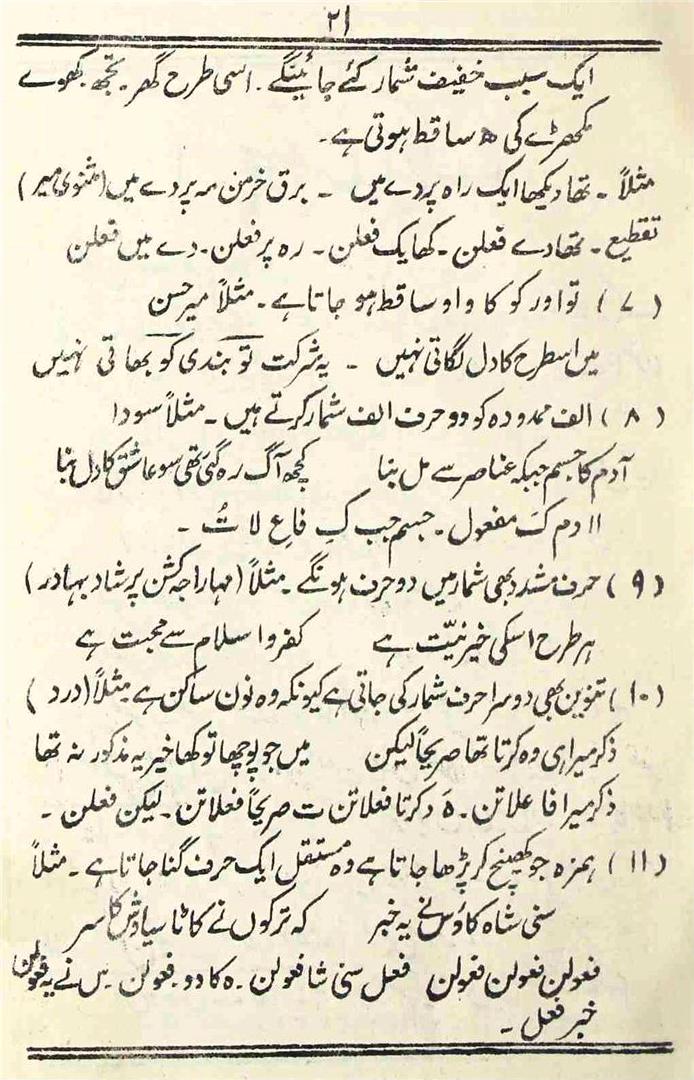 ۲۱
ایک سبب خفیف شمار کئے جائینگے۔ اسی طرح گھر۔ تجھ۔ کھوے
کھڑے کی ھ ساقط ہوتی ہے۔
مثلاً ۔ تھا دیکھا ایک راہ پردے میں ۔ برق خرمن مہ پردے میں (مثنوی میر)
تقطیع ۔ تھادے فعلن ۔ کھایک فعلن ۔ رہ پر فعلن ۔ دے میں فعلن
(۷) تو اور کو کا واو ساقط ہو جاتا ہے ۔ مثلاً میر حسن
میں اسطرح کا دل لگاتی نہیں ۔ یہ شرکت تو بندی کو بھاتی نہیں
(۸) الف ممدودہ کو دو حرف الف شمار کرتے ہیں ۔ مثلاً سودا
آدم کا جسم جبکہ عناصر سے مل بنا کچھ آگ رہ گئی تھی سو عاشق کا دل بنا
اا دم کَ مفعول ۔ جسم جب کِ فاعِ لاتُ ۔
(۹) حرف مشدد بھی شمار میں دو حرف ہونگے ۔ مثلاً (مہاراجہ کشن پرشاد بہادر)
ہر طرح اسکی خیر نیّت ہے کفر و اسلام سے محبت ہے
(۱۰) تنوین بھی دوسرا حرف شمار کی جاتی ہے کیونکہ وہ نون ساکن ہے ۔ مثلاً (درد)
ذکر میرا ہی وہ کرتا تھا صریحاً لیکن میں جو پوچھا تو کھا خیر یہ مذکور نہ تھا
ذکر میرا فاعلاتن ۔ ہَ د کرتا فعلاتن ت صریحاً فعلاتن ۔ لیکن فعلن ۔
(۱۱) ہمزہ جو کھینچ کر پڑھا جاتا ہے وہ مستقل ایک حرف گنا جاتا ہے ۔ مثلاً
سنی شاہ کاؤس نے یہ خبر کہ ترکوں نے کاٹا سیاوش کا سر
فعولن فعولن فعولن فعل سنی شا فعولن ۔ ہ کا دو ۔ فعولن ۔ س نے یہ فعولن
خبر فعل ۔